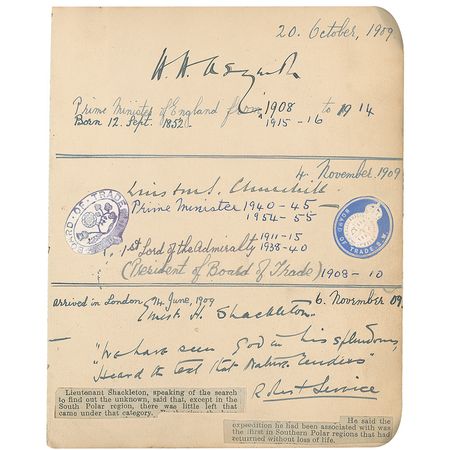 20. October, 1909
H. H. Asquith
Prime Minister of England from 1908 to 1914
Born 12. Sept. 1852. 1915 - 16
4. November. 1909
Winston S. Churchill
Prime Minister 1940 - 45 -
1954 - 55
BOARD · OF · TRADE
BOARD OF TRADE S.W.
1st Lord of the Admiralty 1911-15
1938-40
(President of Board of Trade) 1908 - 10
arrived in London 14 June, 1909 6. November 09.
Ernest H. Shackleton.
"We have seen God in his splendours,
Heard the text that Nature renders"
Robert Service
Lieutenant Shackleton, speaking of the search
to find out the unknown, said that, except in the
South Polar region, there was little left that
came under that category.
He said the
expedition he had been associated with was
the first in Southern Polar regions that had
returned without loss of life.